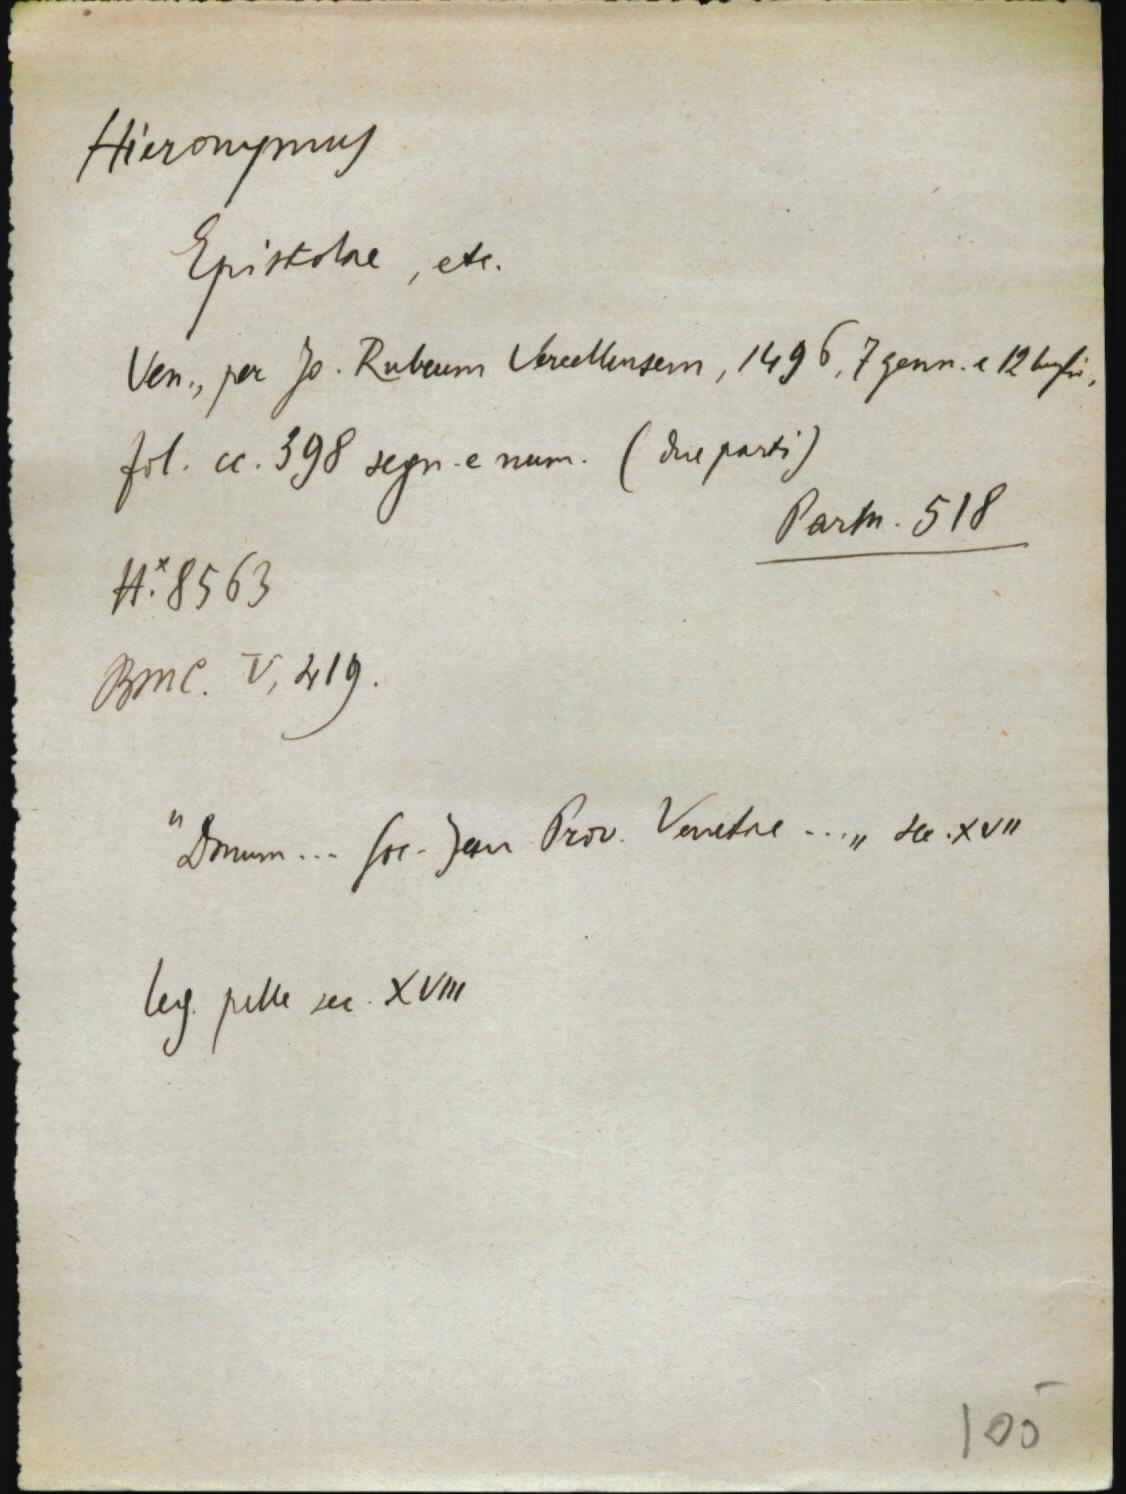 Hieronymus
Epistolae, etc.
Ven., per Jo. Rubeum Vercellensem, 1496, 7 genn. e 12 luglio,
fol. cc. 398 segn. e num. (due parti)
Parm. 518
H.* 8563
BMC. V, 419.
"Donum... Soc. Jesu Prov. Venetae ..." sec. XVII
leg. pelle sec. XVIII
105